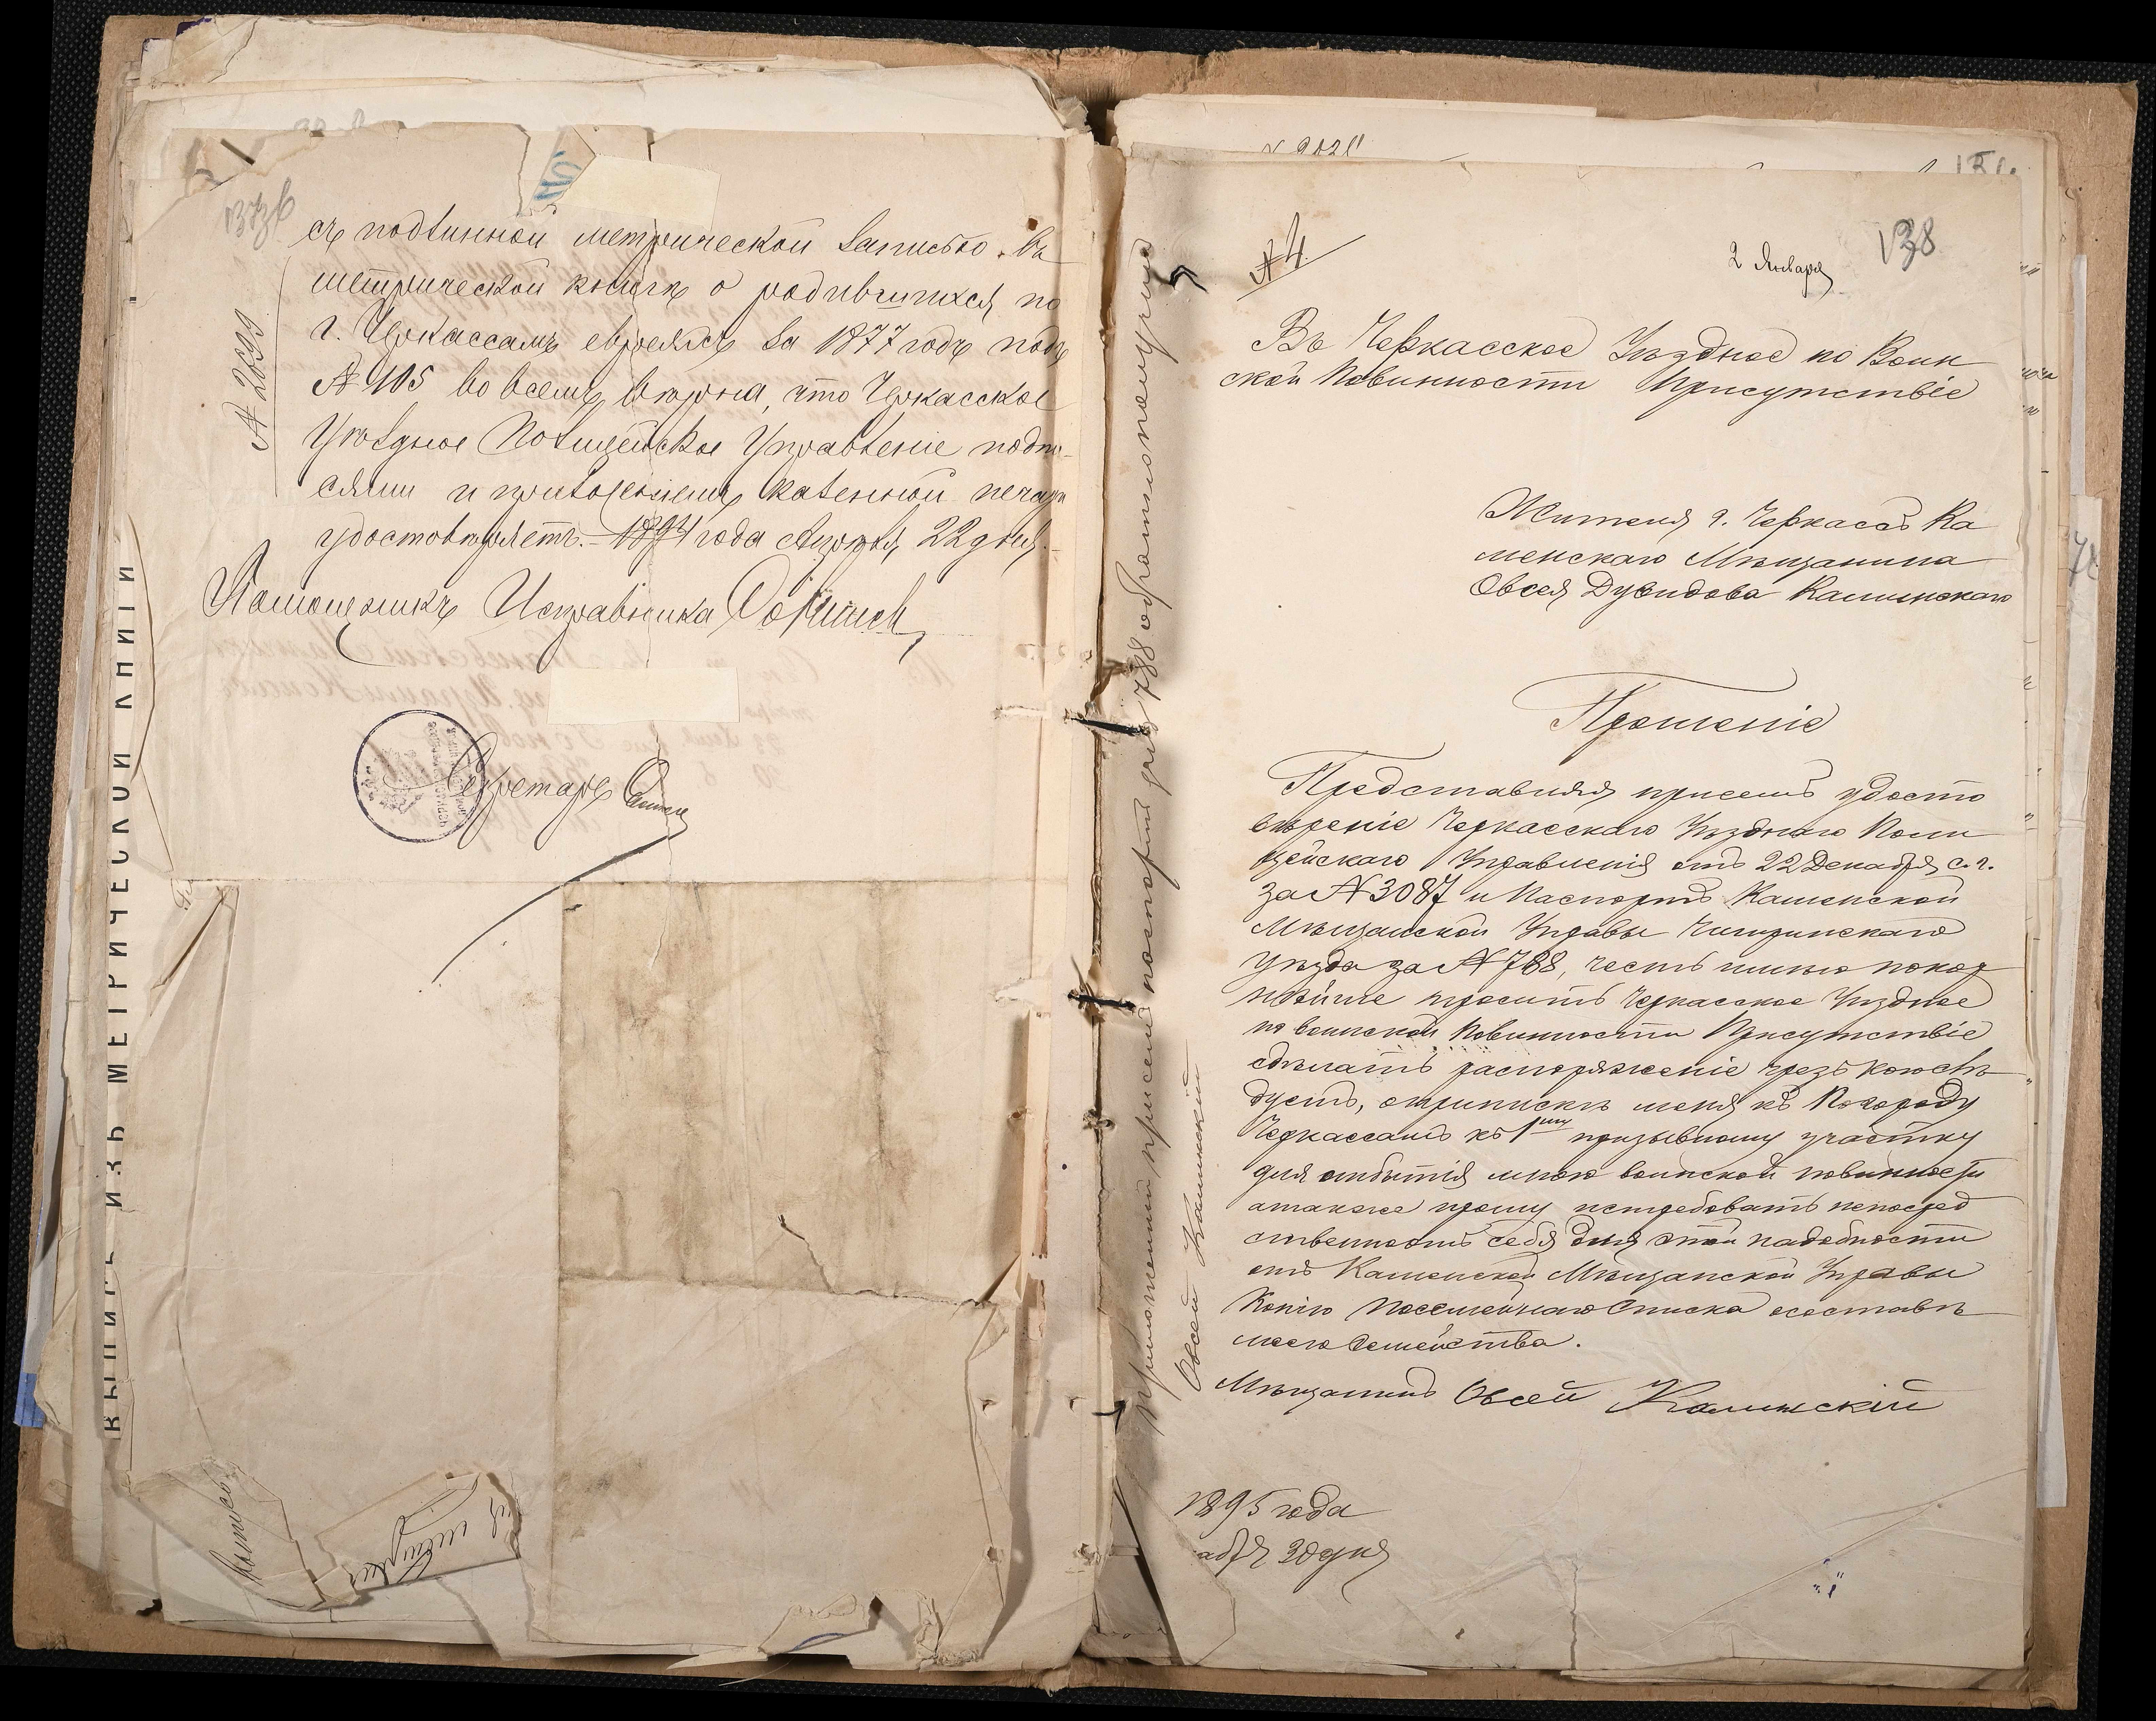 съ подлинной метрической записью въ
метрической книгѣ о родившихся по
г. Черкассамъ евреяхъ за 1877 годъ подъ
№ 105 во всемъ вѣрна, что Черкасское
Уѣздное Полицейское Управленіе подпи-
сями и приложеніемъ казенной печати
удостовѣряетъ. 1894 года Апрѣля 22 дня.
Помощникъ Исправника
Секретарь
№ 20699
ВЫПИСЬ ИЗЪ МЕТРИЧЕСКОЙ КНИГИ
№ 4.
2 Января
138
Въ Черкасское Уѣздное по Воин
ской Повинности Присутствіе
Жителя г. Черкасъ Ка
менскаго Мѣщанина
Овсея Дувидова Калинскаго
Прошеніе
Представляя присемъ удосто
вѣреніе Черкасскаго Уѣзднаго Поли
цейскаго Управленія отъ 22 Декабря с. г.
за № 3087 и Паспортъ Каменской
Мѣщанской Управы Чигиринскаго
уѣзда за № 788, честь имѣю покор
нѣйше просить Черкасское Уѣздное
по воинской Повинности Присутствіе
сдѣлать распоряженіе чрезъ кого слѣ
дуетъ, оприпискѣ меня къ Погороду
Черкассамъ къ 1му призывному участку
для отбытія мною воинской повинности
атакже прошу истребовать непосред
ственноотъ себя для этой надобности
отъ Каменской Мѣщанской Управы
Копію Посемейнаго Списка осоставѣ
моего Семейства.
Мѣщанинъ Овсей Калинскій
1895 года
абря 30 дня
Приложенный присемъ паспортъ за № 788 обратно получилъ
Овсей Калинскій